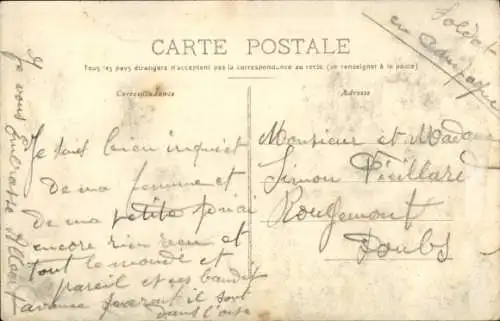 Soldat
en campagne
CARTE POSTALE
Tous les pays étrangers n'acceptent pas la correspondance au recto (se renseigner à la poste)
Correspondance
Adresse
Je suis bien inquiet
de ma femme et
de ma petite j'ai
encore rien reçu et
tout le monde et
pareil et ces bandit
avance il sont
dans l'oise
Je vous Embrasse
Monsieur et Madame
Simon
Rougemont
Doubs